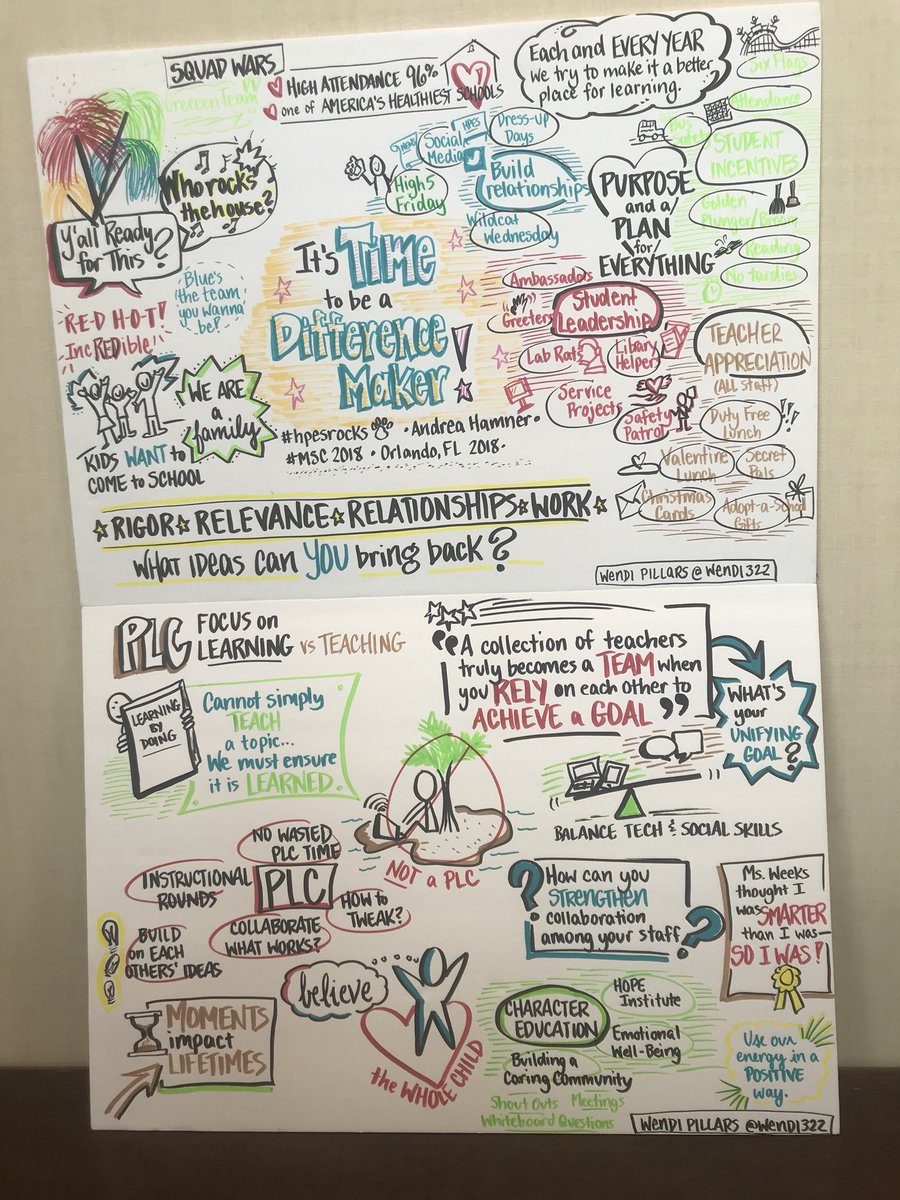 SQUAD WARS
Green Team
HIGH ATTENDANCE 96%
one of AMERICA'S HEALTHIEST SCHOOLS
Each and EVERY YEAR
we try to make it a better
place for learning.
Six Flags
Attendance
Bus Safety
STUDENT
INCENTIVES
Golden
Plunger/Broom
Reading
No tardies
Who rocks
the house?
Y'all Ready
for This?
Blue's
the team
you wanna
be!
RED HOT!
IncREDible!
G NEWS
HPES
Social
Media
Dress-up
Days
Build
relationships
High 5
Friday
Wildcat
Wednesday
PURPOSE
and a
PLAN
for
EVERYTHING
It's TIME
to be a
Difference
Maker!
Ambassadors
Greeters
Student
Leadership
Lab Rat
Library
Helper
Service
Projects
Safety
Patrol
TEACHER
APPRECIATION
(ALL STAFF)
Duty Free
Lunch
Valentine
Lunch
Secret
Pals
Christmas
Cards
Adopt-a-School
Gifts
WE ARE
a
family
KIDS WANT to
COME TO SCHOOL
#hpesrocks • Andrea Hamner •
#MSC 2018 • Orlando, FL 2018 •
RIGOR RELEVANCE RELATIONSHIPS WORK
WHAT IDEAS CAN YOU bring back?
WENDI PILLARS @WENDI322
PLC FOCUS on
LEARNING vs TEACHING
LEARNING
BY
DOING
Cannot simply
TEACH
a topic...
We must ensure
it is LEARNED.
"A collection of teachers
truly becomes a TEAM when
you RELY on each other to
ACHIEVE a GOAL"
WHAT'S
your
UNIFYING
GOAL?
BALANCE TECH & SOCIAL SKILLS
NOT a PLC
NO WASTED
PLC TIME
INSTRUCTIONAL
ROUNDS
PLC
HOW to
TWEAK?
COLLABORATE
WHAT WORKS?
BUILD
on EACH
OTHERS' IDEAS
How can you
STRENGTHEN
collaboration
among your staff?
Ms. Weeks
thought I
was SMARTER
than I was—
SO I WAS!
believe
the WHOLE CHILD
MOMENTS
impact
LIFETIMES
CHARACTER
EDUCATION
HOPE
Institute
Emotional
Well-Being
Building a
Caring Community
Shout Outs Meetings
Whiteboard Questions
Use our
energy in a
POSITIVE
way.
WENDI PILLARS @WENDI322